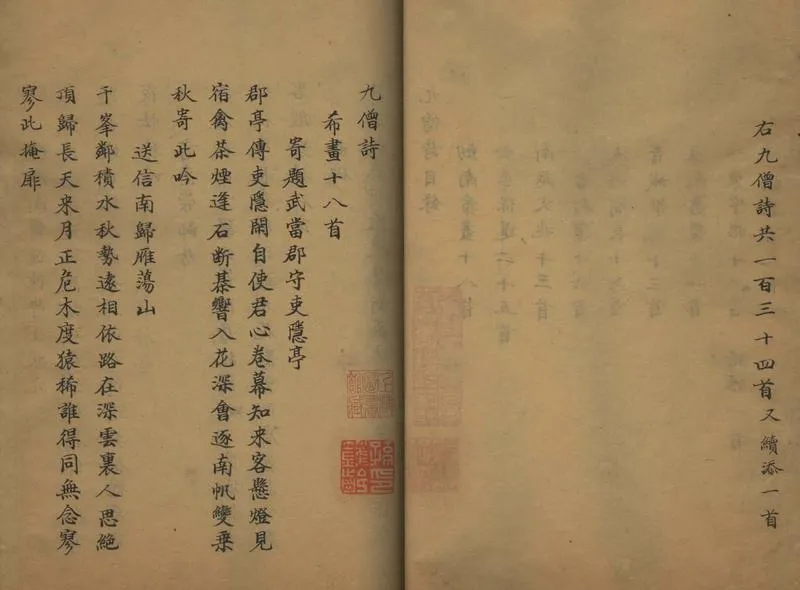 右九僧詩共一百三十四首又續添一首
九僧詩
希晝十八首
寄題武當郡守吏隱亭
郡亭傳吏隱閑自使君心卷幕知来客懸燈見
宿禽茶煙逢石断棊響入花深會逐南帆便乗
秋寄此吟
送信南歸雁蕩山
千峯鄰積水秋勢遠相依路在深雲裏人思絶
頂歸長天来月正危木度猿稀誰得同無念寥
寥此掩扉